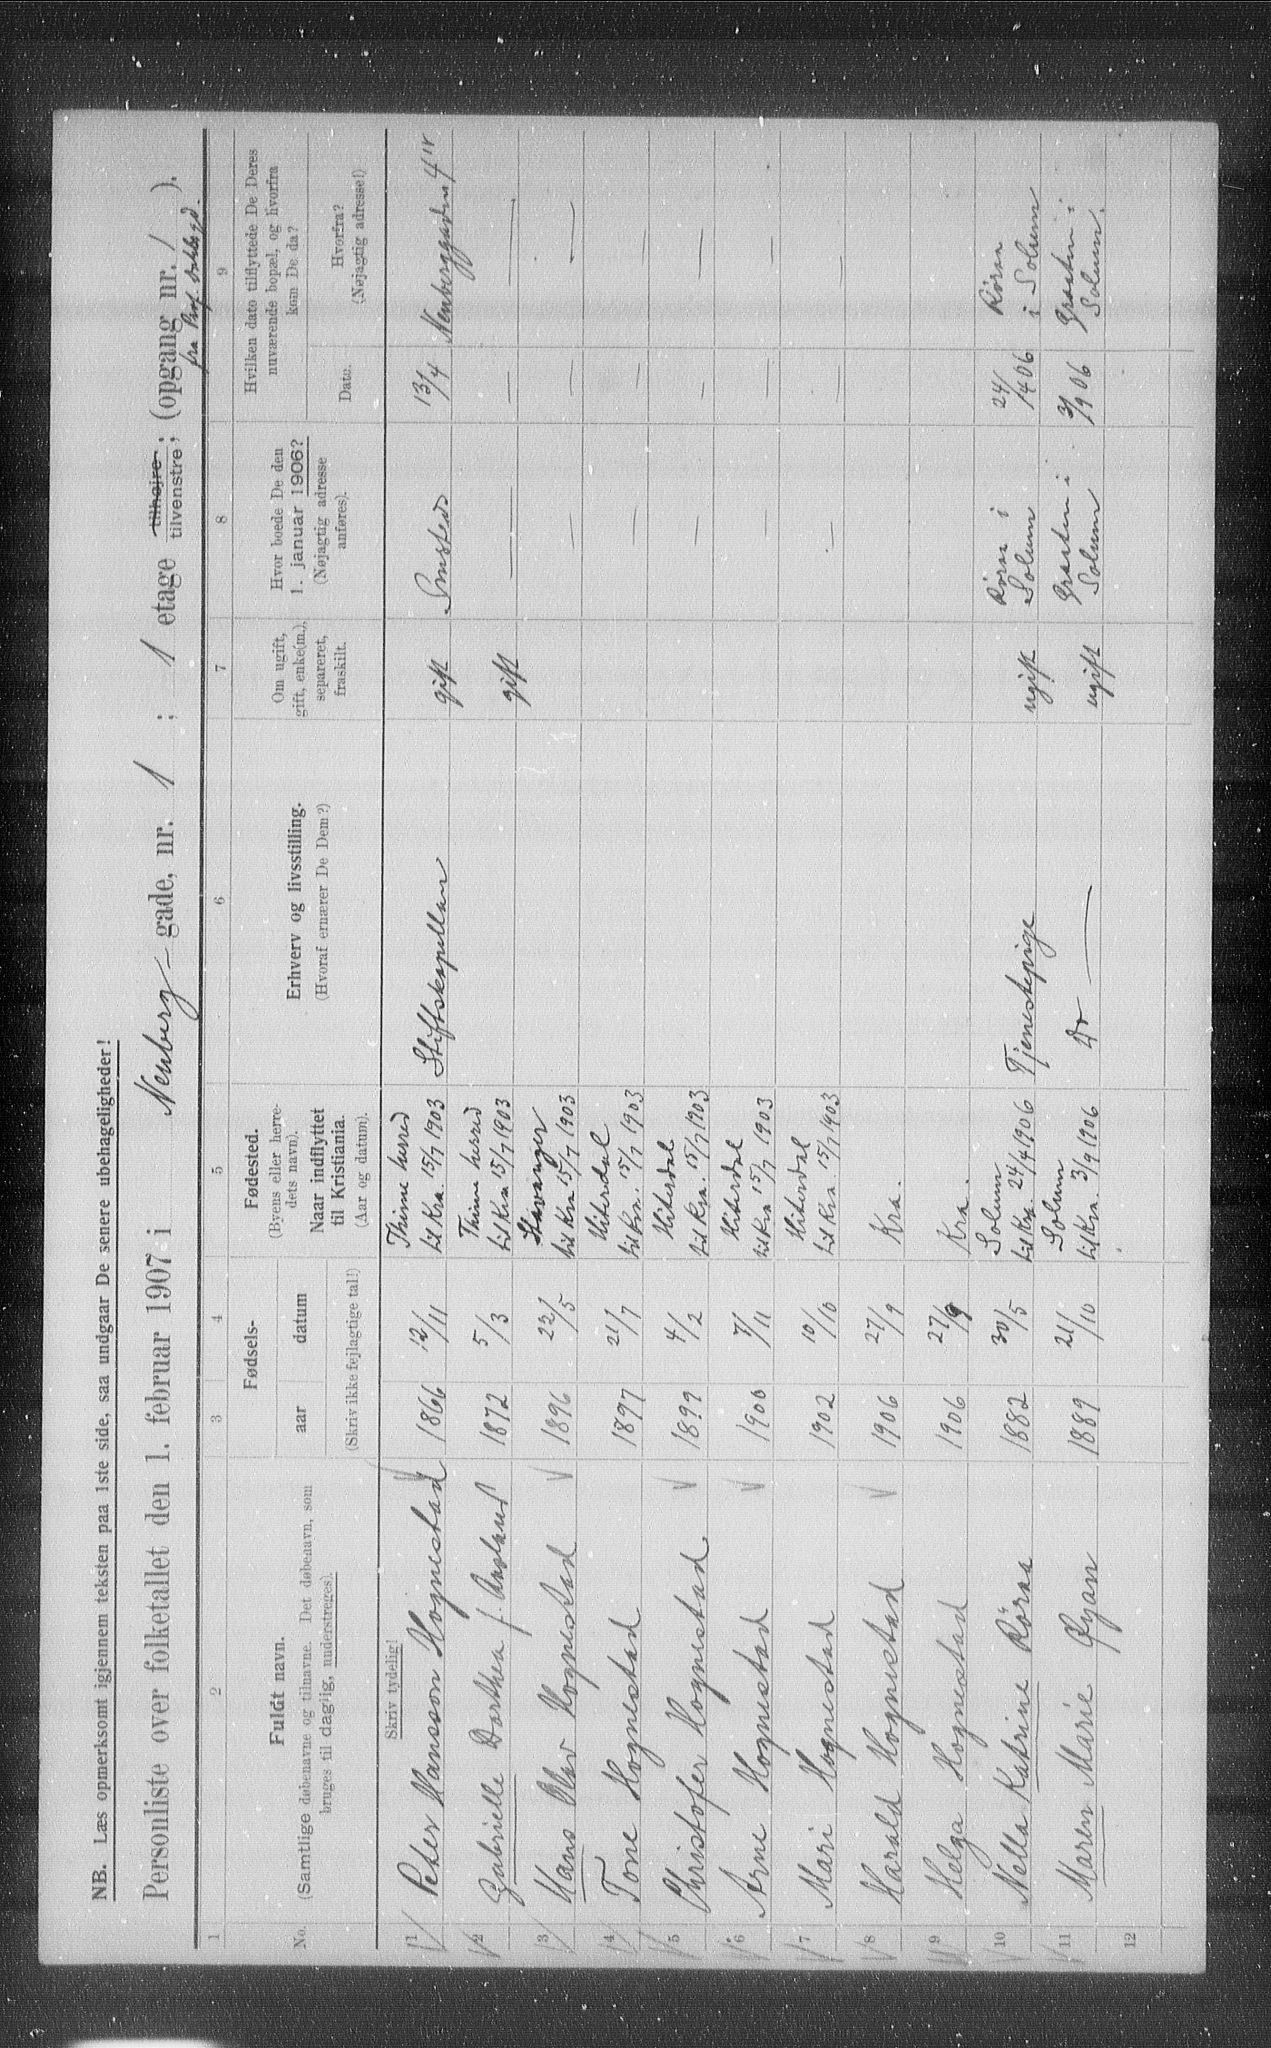 NB. Læs opmerksomt igjennem teksten paa 1ste side, saa undgaar De senere ubehageligheder!
Personliste over folketallet den 1. februar 1907 i Neuberg-gade, nr. 1; 1 etage tilhøjre; tilvenstre; (opgang nr. / ).
fra Prof.
1 2 3 4 5 6 7 8 9
No.
Fuldt navn.
(Samtlige døbenavne og tilnavne. Det døbenavn, som
bruges til daglig, understreges).
Fødsels-
aar datum
(Skriv ikke fejlagtige tal!)
Fødested.
(Byens eller herre-
dets navn).
Naar indflyttet
til Kristiania.
(Aar og datum).
Erhverv og livsstilling.
(Hvoraf ernærer De Dem?)
Om ugift,
gift, enke(m.),
separeret,
fraskilt.
Hvor boede De den
1. januar 1906?
(Nøjagtig adresse
anføres).
Hvilken dato tilflyttede De Deres
nuværende bopæl, og hvorfra
kom De da?
Dato.
Hvorfra?
(Nøjagtig adresse!)
Skriv tydelig!
1 Peter Hansson Hognestad 1866 12/11 Thime herred til Kra. 15/7 1903 Stiftskapellan gift 13/4 Neuberggaden 4 IV
2 Gabrielle Dorthea f. Aasland 1872 5/3 Thime herred til Kra 15/7 1903 gift — — —
3 Hans Olav Hognestad 1896 22/5 Stavanger til Kra 15/7 1903 — — —
4 Tone Hognestad 1897 21/7 Hiterdal til Kra. 15/7 1903 — — —
5 Christofer Hognestad. 1899 4/2 Hiterdal til Kra. 15/7 1903 — — —
6 Arne Hognestad 1900 7/11 Hiterdal til Kra 15/7 1903 — —
7 Mari Hognestad 1902 10/10 Hiterdal til Kra 15/7 1903 — — —
8 Harald Hognestad 1906 27/9 Kra.
9 Helga Hognestad 1906 27/9 Kra.
10 Nella Katrine Röraa 1882 30/5 Solum til Kra. 24/4 1906 Tjenestepige ugift Röraa i Solum 24/4 06 Röraa i Solum
11 Maren Marie Øyan 1889 21/10 Solum til Kra. 3/9 1906 Do — ugift Graaten i Solum 3/9 06 Graaten i Solum.
12